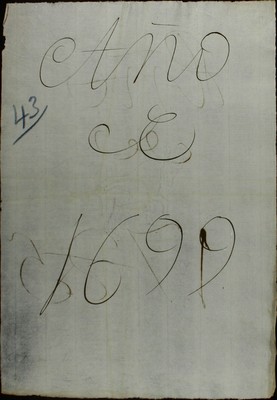 Año
43
de
1699